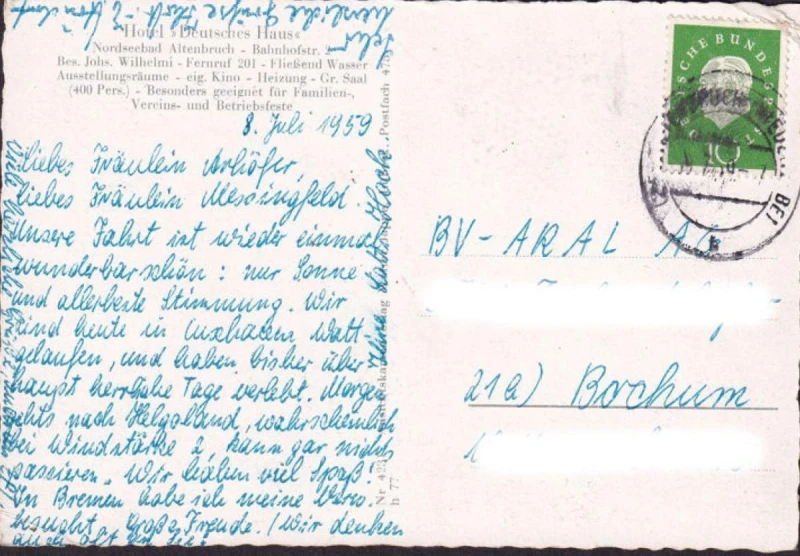 Herzliche Grüße
Sehr
Hotel »Deutsches Haus«
Nordseebad Altenbruch - Bahnhofstr. 2
Bes. Johs. Wilhelmi - Fernruf 201 - Fließend Wasser
Ausstellungsräume - eig. Kino - Heizung - Gr. Saal
(400 Pers.) - Besonders geeignet für Familien-,
Vereins- und Betriebsfeste
8. Juli 1959
Liebes Fräulein
liebes Fräulein Messingfeld.
Unsere Fahrt ist wieder einmal
wunderbar schön: nur Sonne
und allerbeste Stimmung. Wir
sind heute in Cuxhaven Watt-
gelaufen, und haben bisher über-
haupt herrliche Tage verlebt. Morgen
gehts nach Helgoland, wahrscheinlich
bei Windstärke 2, kann gar nichts
passieren. Wir haben viel Spaß!
In Bremen habe ich meine
besucht. Große Freude. (Wir denken
auch oft an Sie!
Postfach 475
Nr 425
h 77
DEUTSCHE BUNDESPOST
10
BV-ARAL AG
21a) Bochum